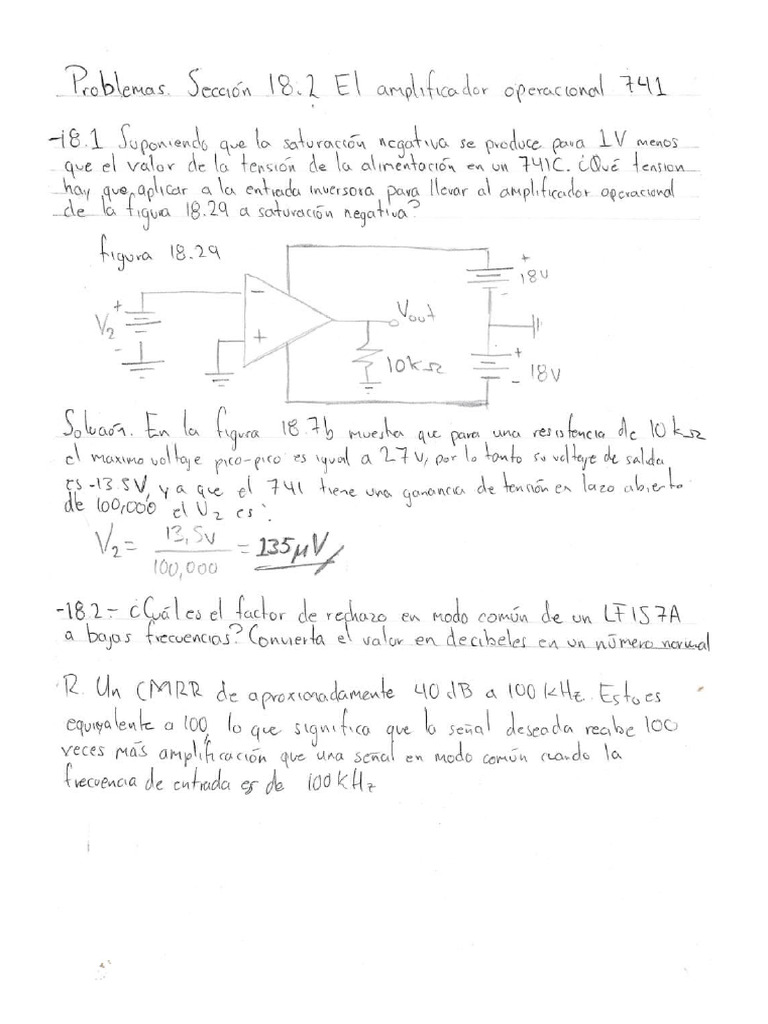 Problemas. Sección 18.2 El amplificador operacional 741
-18.1 Suponiendo que la saturación negativa se produce para 1V menos
que el valor de la tensión de la alimentación en un 741C. ¿Qué tension
hay que aplicar a la entrada inversora para llevar al amplificador operacional
de la figura 18.29 a saturación negativa?
figura 18.29
+
18V
-
+
V2
-
-
+
Vout
10kΩ
+
18V
-
Solución. En la figura 18.7b muestra que para una resistencia de 10kΩ
el maximo voltaje pico-pico es igual a 27v, por lo tanto su voltaje de salida
es -13.5V, ya que el 741 tiene una ganancia de tensión en lazo abierto
de 100,000 el V2 es:
V2 = 13,5v / 100,000 = 135μV
-18.2.- ¿Cuál es el factor de rechazo en modo común de un LF157A
a bajas frecuencias? Convierta el valor en decibeles en un número normal
R. Un CMRR de aproximadamente 40 dB a 100 kHz. Esto es
equivalente a 100, lo que significa que la señal deseada recibe 100
veces más amplificación que una señal en modo común cuando la
frecuencia de entrada es de 100kHz